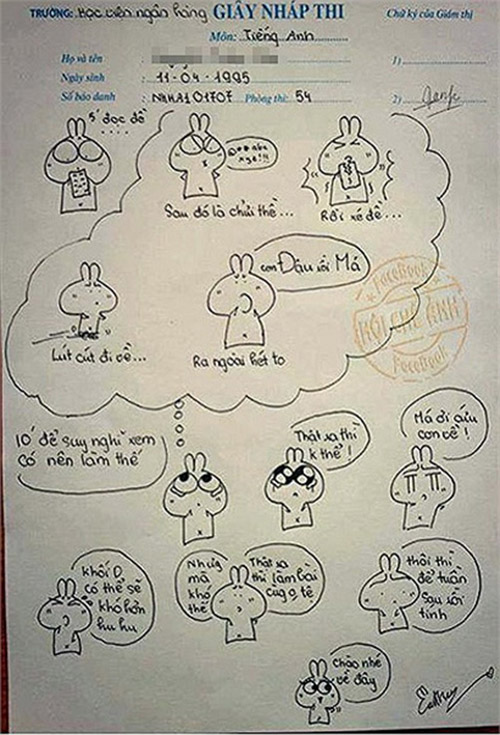 TRƯỜNG: Học viện ngân hàng GIẤY NHÁP THI
Chữ ký của Giám thị
Môn: Tiếng Anh
Họ và tên
1)
Ngày sinh 11-04-1995
Số báo danh NHHA101707 Phòng thi: 54
2)
5' đọc đề
....
Sau đó là chửi thề...
Rồi xé đề...
con Đậu rồi Má
Lút cút đi về...
Ra ngoài hét to
FaceBook
HỘI CHẾ ẢNH
FaceBook
10' để suy nghĩ xem
có nên làm thế
Thật ra thì
k thể!
Má ơi cứu
con về!
khối D
có thể sẽ
khó hơn
hu hu
Nhưg
mà
khó
thế
Thật ra
thì làm bài
cũg o tệ
thôi thì
để tuần
sau rồi
tính
Chào nhé
về đây